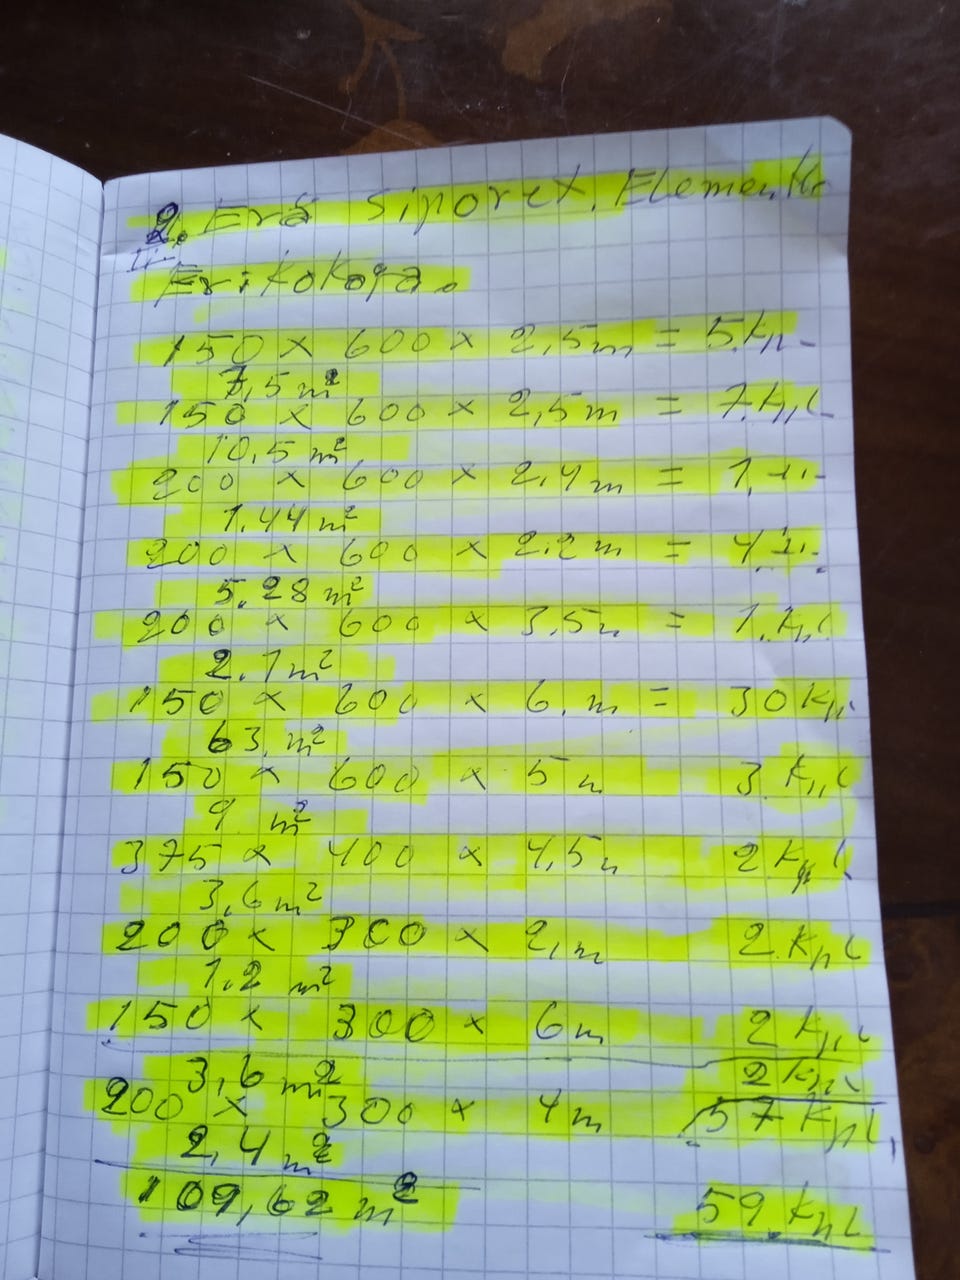 2. Erä Siporex. Elementte
Erikokoja.
150 x 600 x 2,5m = 5.kpl
7,5 m²
150 x 600 x 2,5m = 7.kpl
10,5 m²
200 x 600 x 2,4m = 1. -"-
1.44 m²
200 x 600 x 2.2m = 4. -"-
5.28 m²
200 x 600 x 3.5m = 1.kpl
2.1m²
150 x 600 x 6.m = 30 kpl
63. m²
150 x 600 x 5m 3 kpl
9 m²
375 x 400 x 4,5m 2 kpl
3,6 m²
200 x 300 x 2,m 2 kpl
1.2 m²
150 x 300 x 6m 2 kpl
3,6 m² 2 kpl
200 x 300 x 4m 57 kpl
2,4 m²
109,62 m² 59 kpl